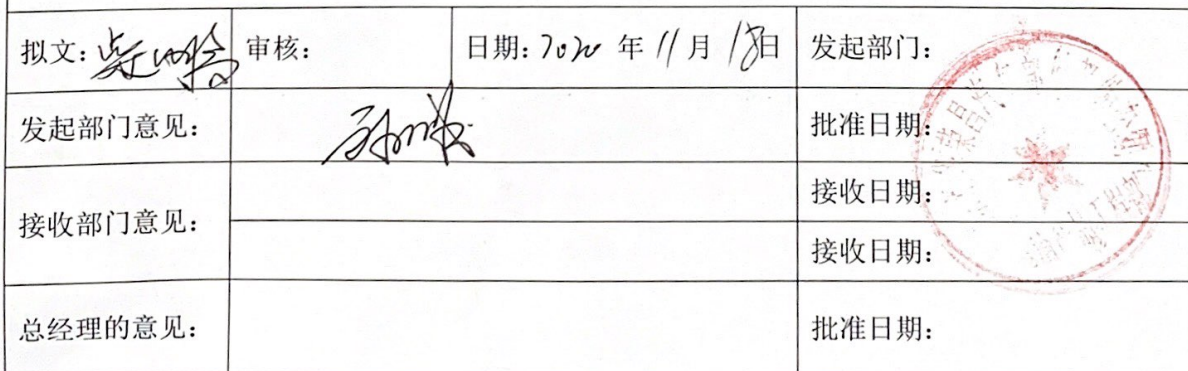 拟文: 审核: 日期: 2020 年 11 月 18日 发起部门:
发起部门意见: 批准日期:
接收部门意见: 接收日期:
接收日期:
总经理的意见: 批准日期: